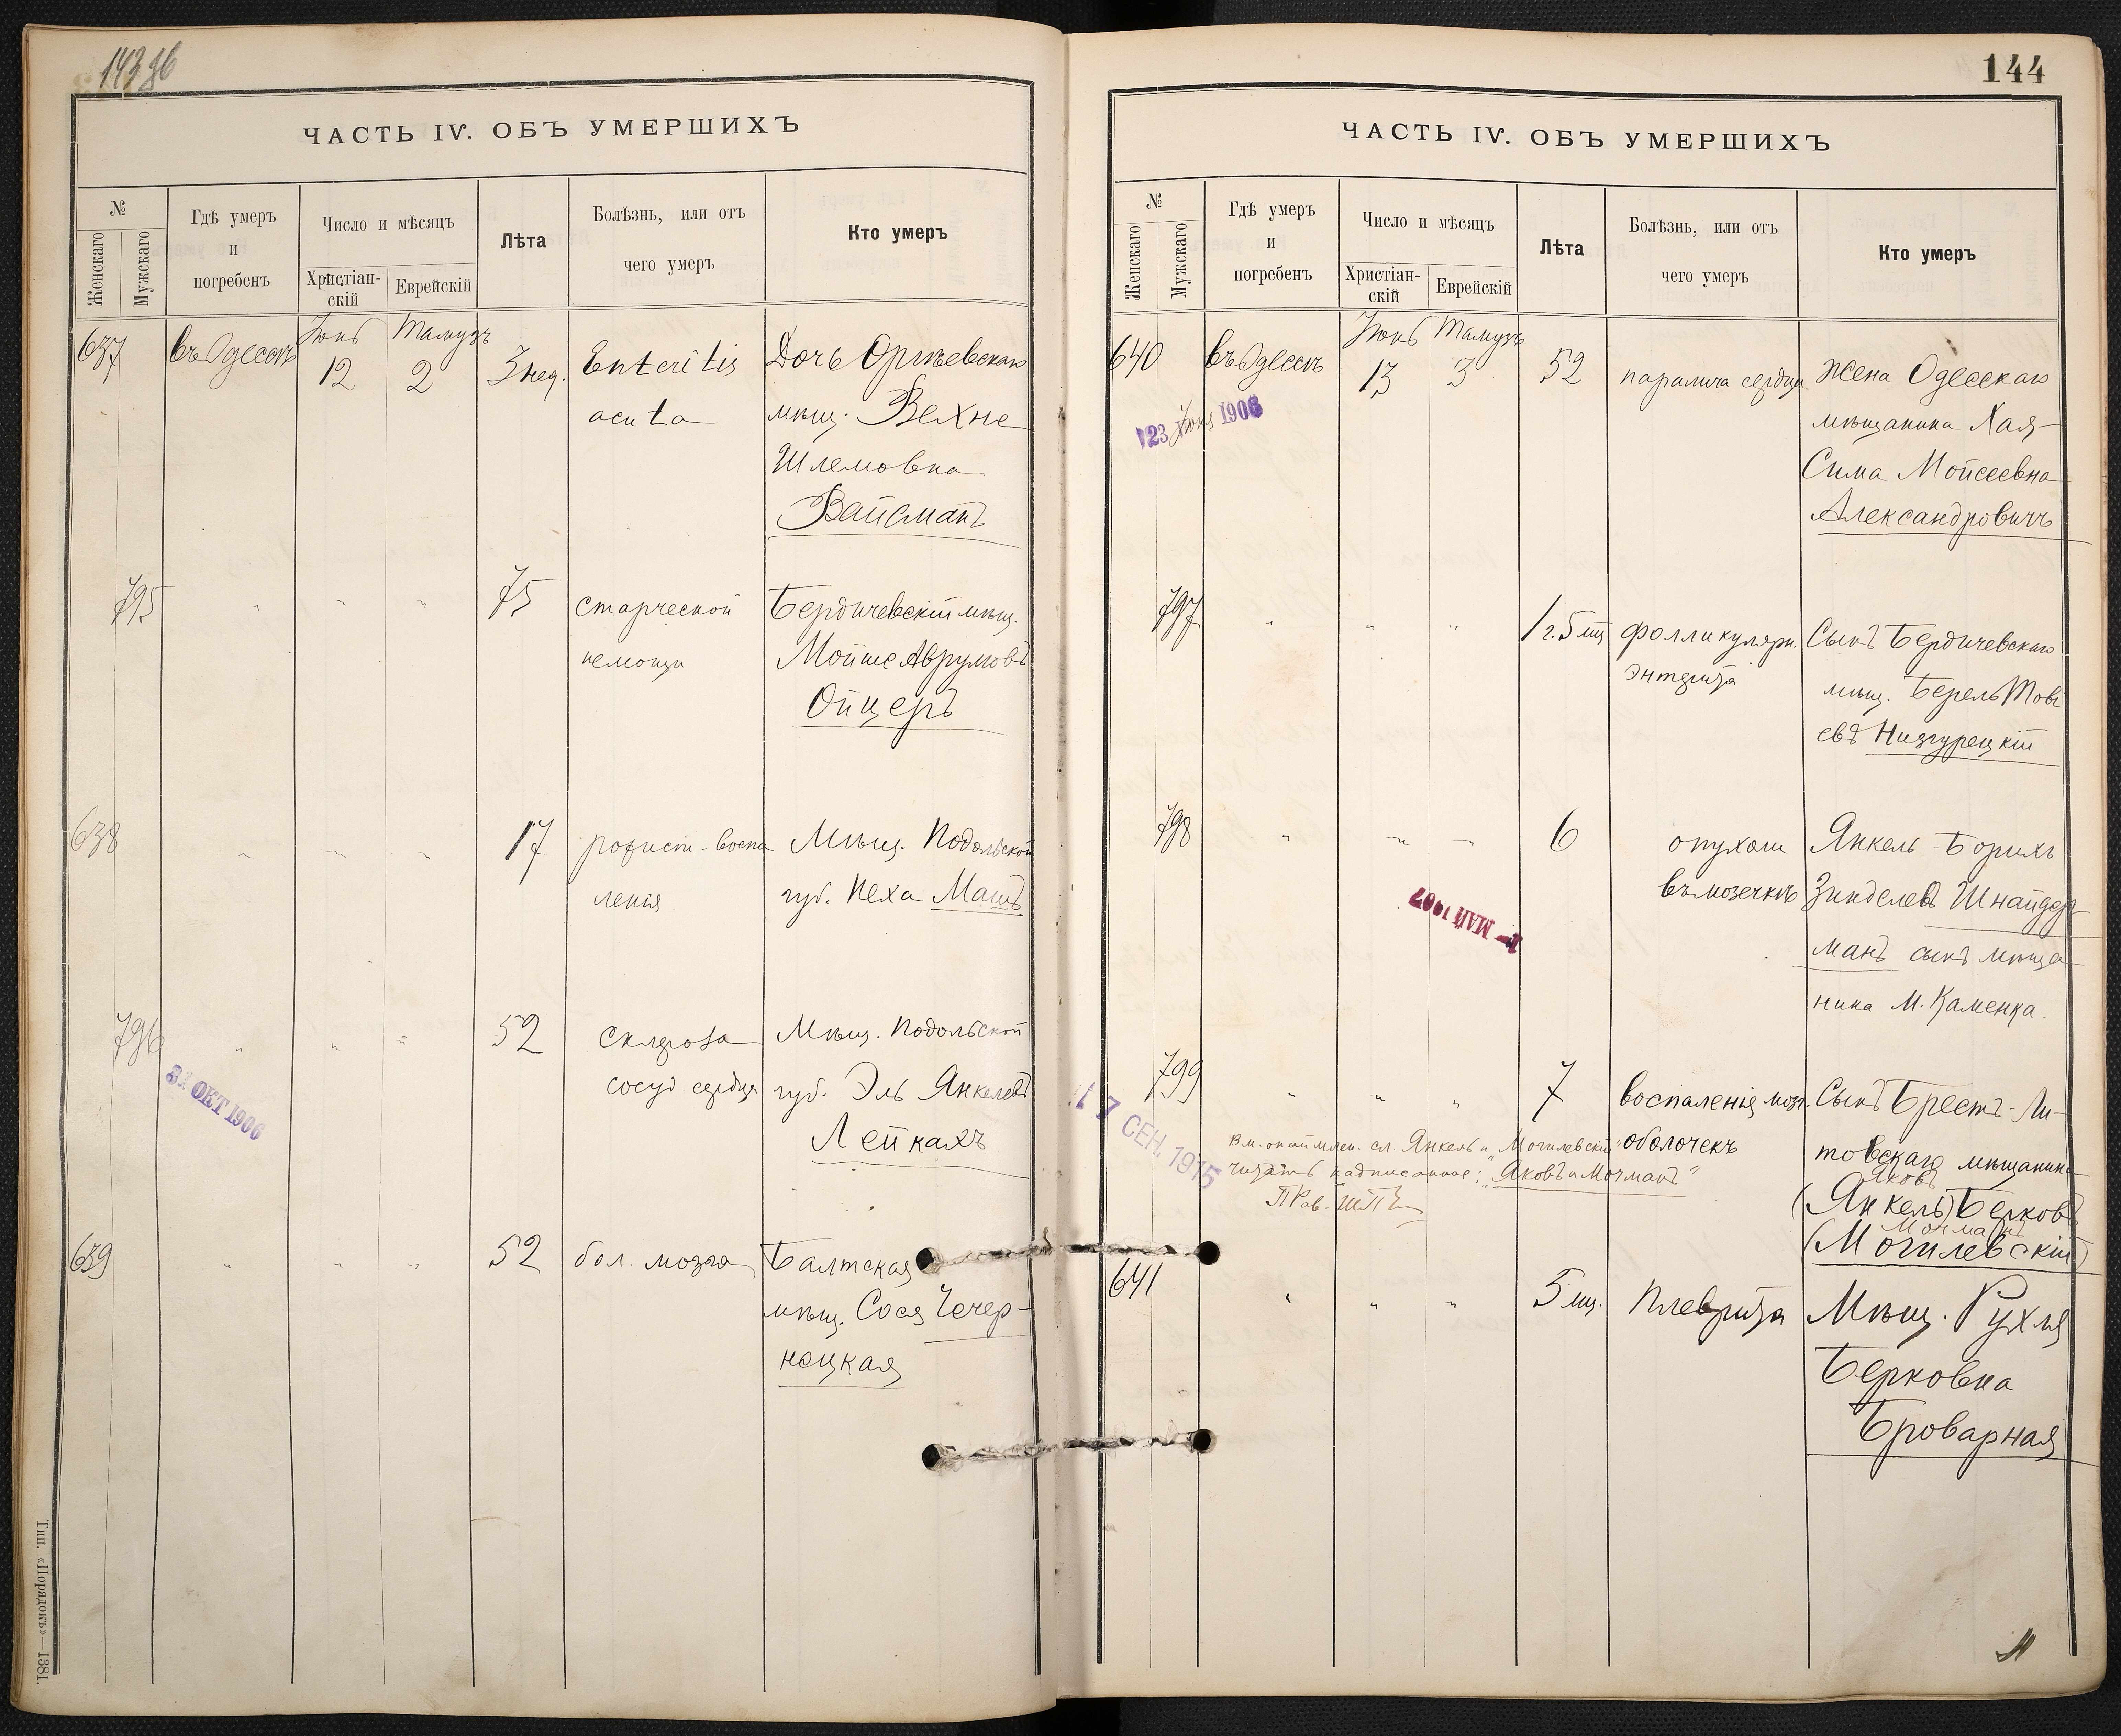 143 об
ЧАСТЬ IV. ОБЪ УМЕРШИХЪ
№
Женскаго
Мужскаго
Гдѣ умеръ
и
погребенъ
Число и мѣсяцъ
Христіан-
скій
Еврейскій
Лѣта
Болѣзнь, или отъ
чего умеръ
Кто умеръ
637 въ Одессѣ Іюнь 12 Тамузъ 2 3 нед. Enteritis Дочь Оргѣевскаго
acuta мѣщ. Вехне
Шлемовна
Вайсманъ
795 " " " 75 старческой Бердичевскій мѣщ.
немощи Мойше Аврумовъ
Ойцеръ
638 " " " 17 рожист-воспа Мѣщ. Подольской
ленія губ. Пеха Машъ
796 " " " 52 склероза Мѣщ. Подольской
31 ОКТ 1906
сосуд. сердца губ. Эль Янкелевъ
Лейкахъ
639 " " " 52 бол. мозга Балтская
мѣщ. Сося Чечер-
нецкая
Тип. «Порядокъ»—1881.
144
ЧАСТЬ IV. ОБЪ УМЕРШИХЪ
№
Женскаго
Мужскаго
Гдѣ умеръ
и
погребенъ
Число и мѣсяцъ
Христіан-
скій
Еврейскій
Лѣта
Болѣзнь, или отъ
чего умеръ
Кто умеръ
640 въ Одессѣ Іюнь 13 Тамузъ 3 52 паралича сердца Жена Одесскаго
23 Іюня 1906
мѣщанина Хая-
Сима Мойсеевна
Александровичъ
797 " " " 1 г. 5 мц фолликулярн. Сынъ Бердичевскаго
энтерита мѣщ. Берель Тові
евъ Низгурецкій
798 " " " 6 опухоли Янкель-Борихъ
въ мозечкѣ Зинделевъ Шнайдер
1- МАЙ 1907
манъ сынъ мѣща
нина М. Каменка.
799 " " " 7 воспаленія мозг. Сынъ Брестъ-Ли-
17 СЕН. 1915
оболочекъ товскаго мѣщанина
Вм. окаймлен. сл. Янкель и "Могилевскій"
читать надписанное: "Яковъ и Мочманъ"
Яковъ
(Янкель) Берковъ
Мочманъ
(Могилевскій)
641 " " " 5 мц. Плеврита Мѣщ. Рухля
Берковна
Броварная